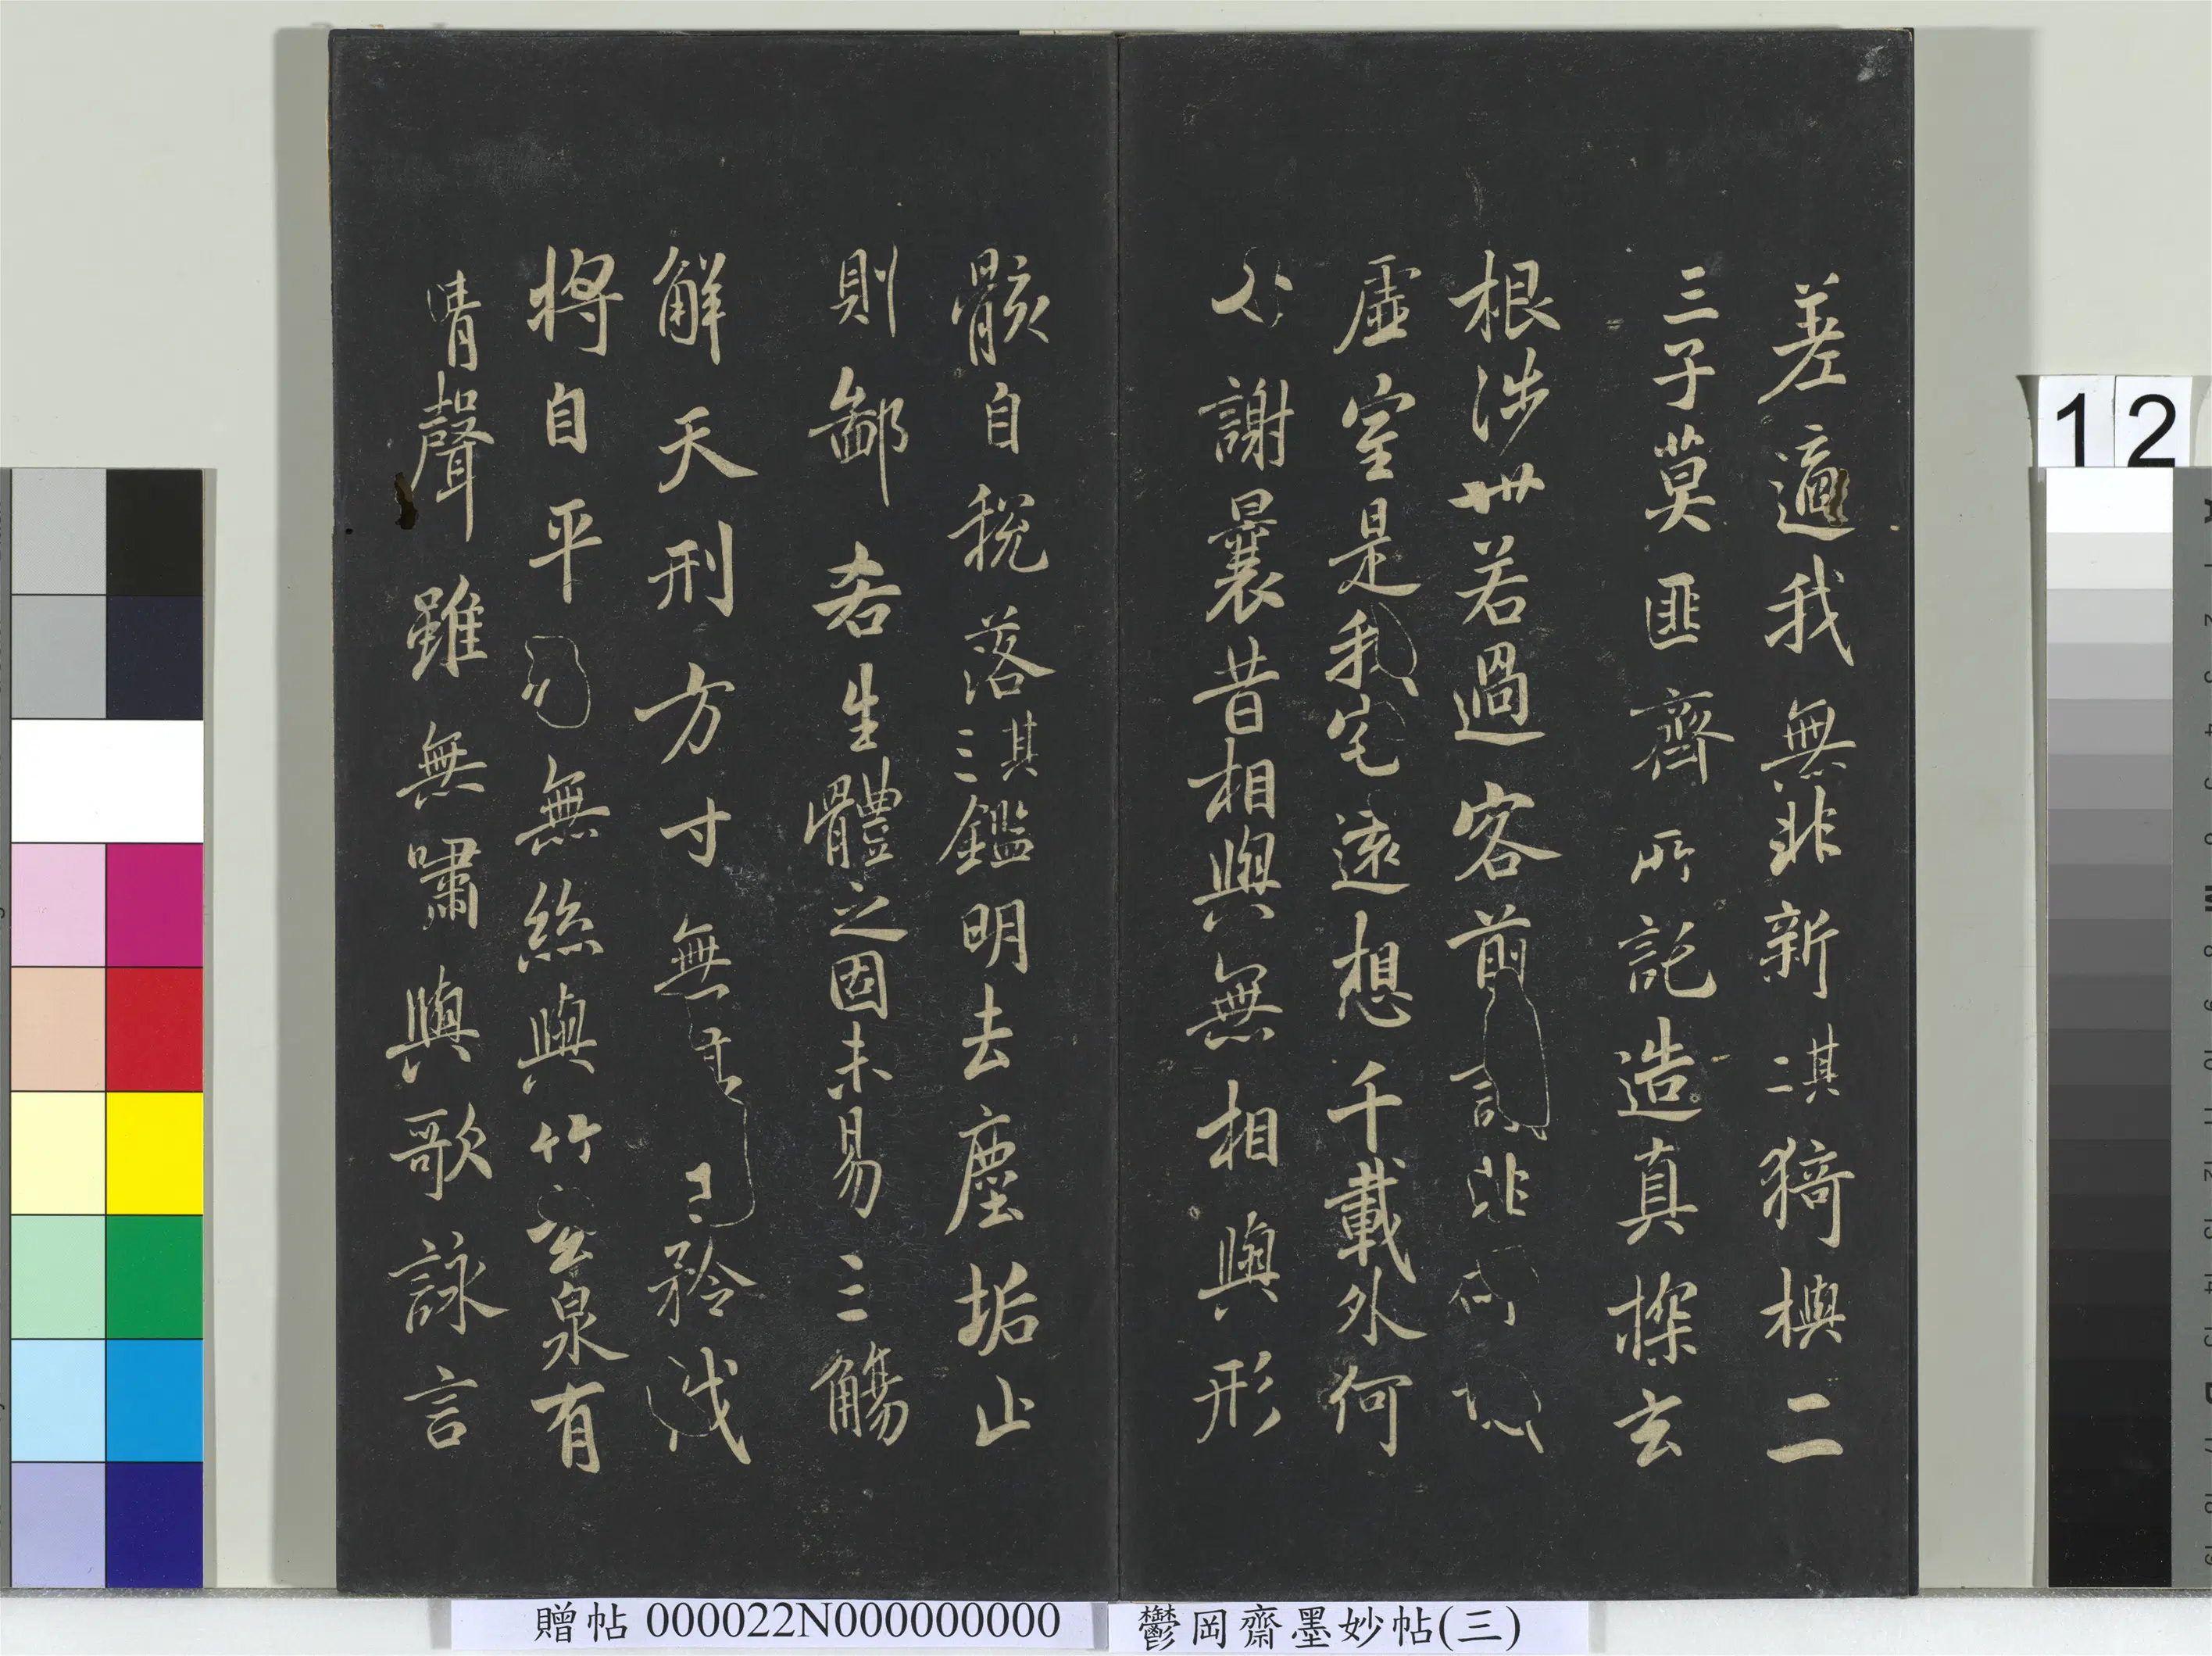 差適我無非新其二猗與二
三子莫匪齊所託造真探玄
根涉世若過客前非
虛室是我宅遠想千載外何
謝曩昔相與無相與形
骸自稅落其三鑑明去塵垢止
則鄙吝生體之固未易三觴
解天刑方寸無矜伐
將自平無絲與竹玄泉有
清聲雖無嘯與歌詠言
12
贈帖 000022N000000000
鬱岡齋墨妙帖(三)